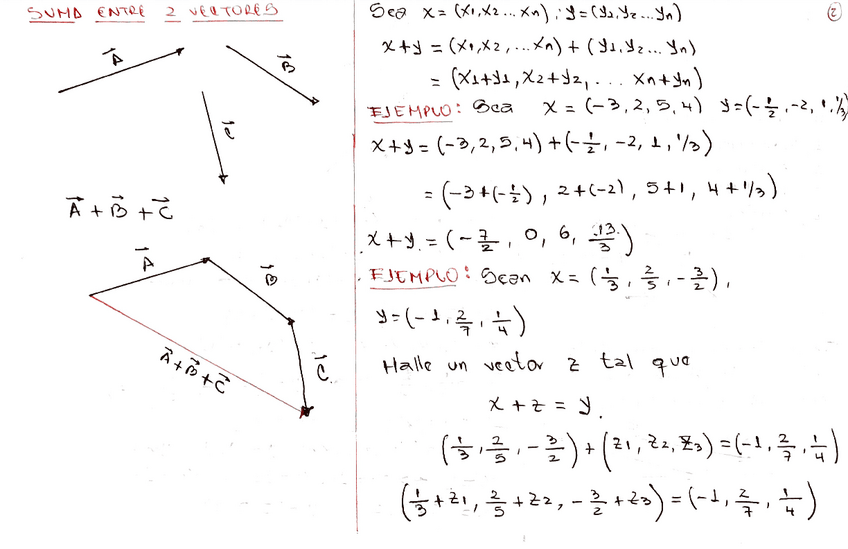 SUMA ENTRE 2 VECTORES
A
B
C
A + B + C
A
B
C
A+B+C
2
Sea x = (x1, x2 ... xn), y = (y1, y2 ... yn)
x+y = (x1, x2, ... xn) + (y1, y2 ... yn)
= (x1+y1, x2+y2, ... xn+yn)
EJEMPLO: Sea x = (-3, 2, 5, 4) y = (-1/2, -2, 1, 1/3)
x+y = (-3, 2, 5, 4) + (-1/2, -2, 1, 1/3)
= (-3+(-1/2), 2+(-2), 5+1, 4+1/3)
x+y = (-7/2, 0, 6, 13/3)
EJEMPLO: Sean x = (1/3, 2/5, -3/2),
y = (-1, 2/7, 1/4)
Halle un vector z tal que
x + z = y.
(1/3, 2/5, -3/2) + (z1, z2, z3) = (-1, 2/7, 1/4)
(1/3 + z1, 2/5 + z2, -3/2 + z3) = (-1, 2/7, 1/4)